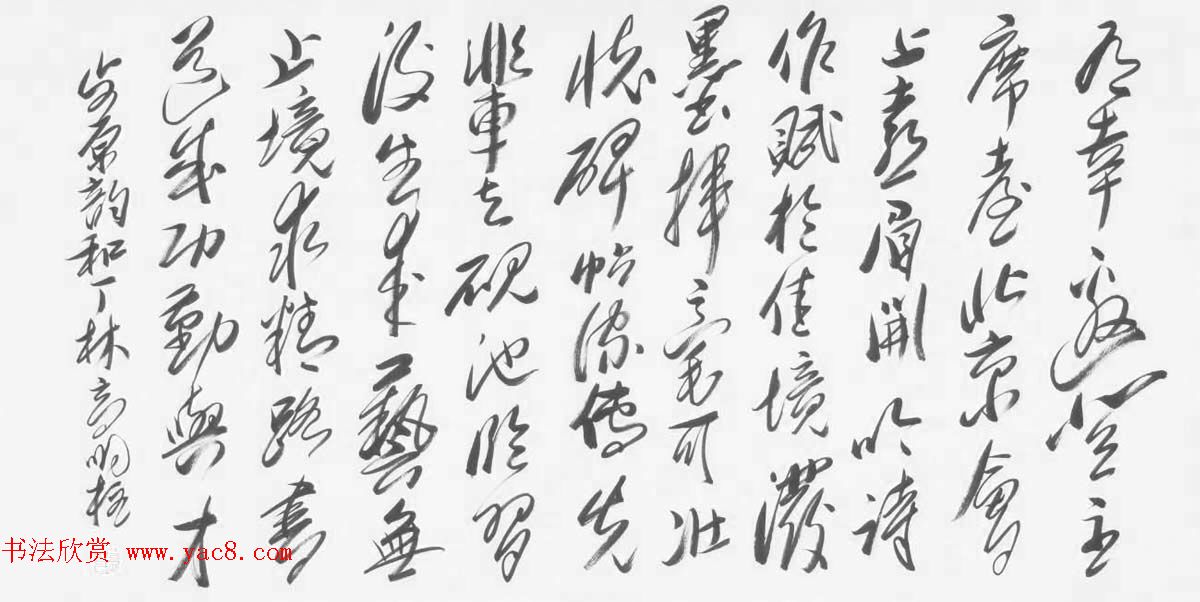 有幸邀登主
席臺北京會
上喜眉開吟詩
作賦於佳境潑
墨揮毫可壯
懷碑帖流傳先
輩去硯池臨習
後生來藝無
止境求精路書
道成功勤與才
步原韵和丁林高明柱
书法欣赏 www.yac8.com